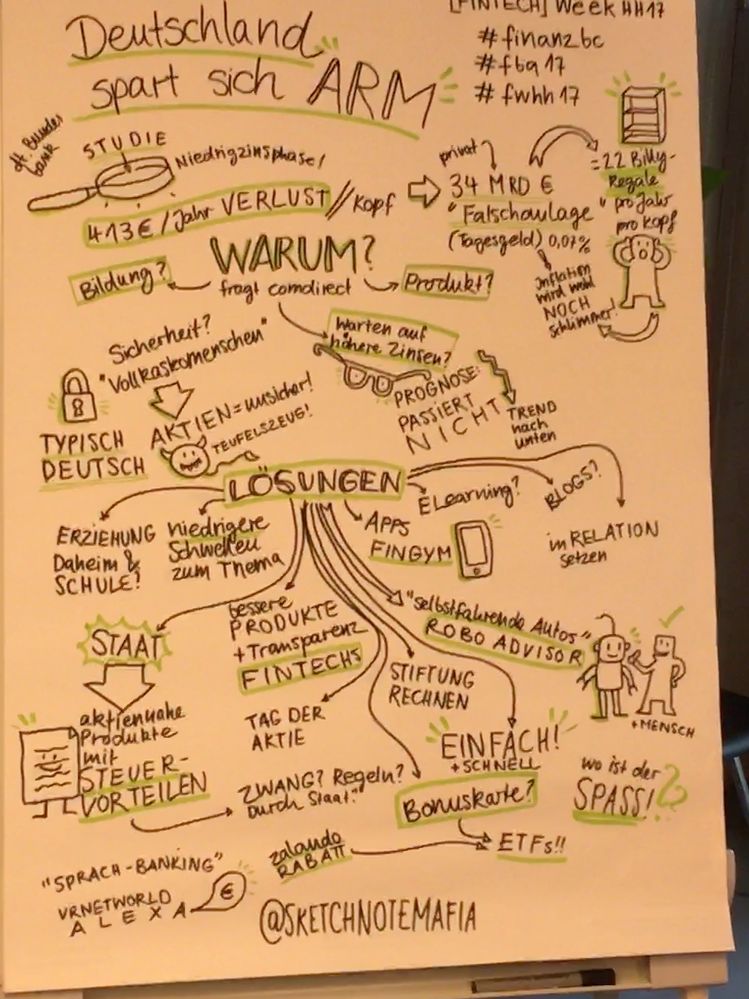 [FINTECH] Week HH17
#finanzbc
#fbq17
#fwhh17
Deutschland
spart sich ARM
dt. Bundes
bank
STUDIE
Niedrigzinsphase!
413€/Jahr VERLUST // Kopf
privat
34 MRD €
"Falschanlage"
(Tagesgeld) 0,07%
=22 Billy-
Regale
pro Jahr
pro Kopf
Inflation
wird wohl
NOCH
schlimmer!
WARUM?
fragt comdirect
Bildung?
Produkt?
Warten auf
höhere Zinsen?
Sicherheit?
"Vollkaskomenschen"
AKTIEN=unsicher!
TEUFELSZEUG!
TYPISCH
DEUTSCH
PROGNOSE:
PASSIERT
NICHT
TREND
nach
unten
LÖSUNGEN
ERZIEHUNG
Daheim &
SCHULE?
niedrigere
Schwellen
zum Thema
APPS
FINGYM
ELearning?
BLOGS?
in RELATION
setzen
STAAT
aktiennahe
Produkte
mit
STEUER-
VORTEILEN
bessere
PRODUKTE
+Transparenz
FINTECHS
TAG DER
AKTIE
STIFTUNG
RECHNEN
"selbstfahrende Autos"
ROBO ADVISOR
+MENSCH
EINFACH!
+SCHNELL
wo ist der
SPASS!?
ZWANG? Regeln?
Durch Staat?
Bonuskarte?
zalando
RABATT
ETFs!!
"SPRACH-BANKING"
VRNETWORLD
ALEXA
€
@SKETCHNOTEMAFIA